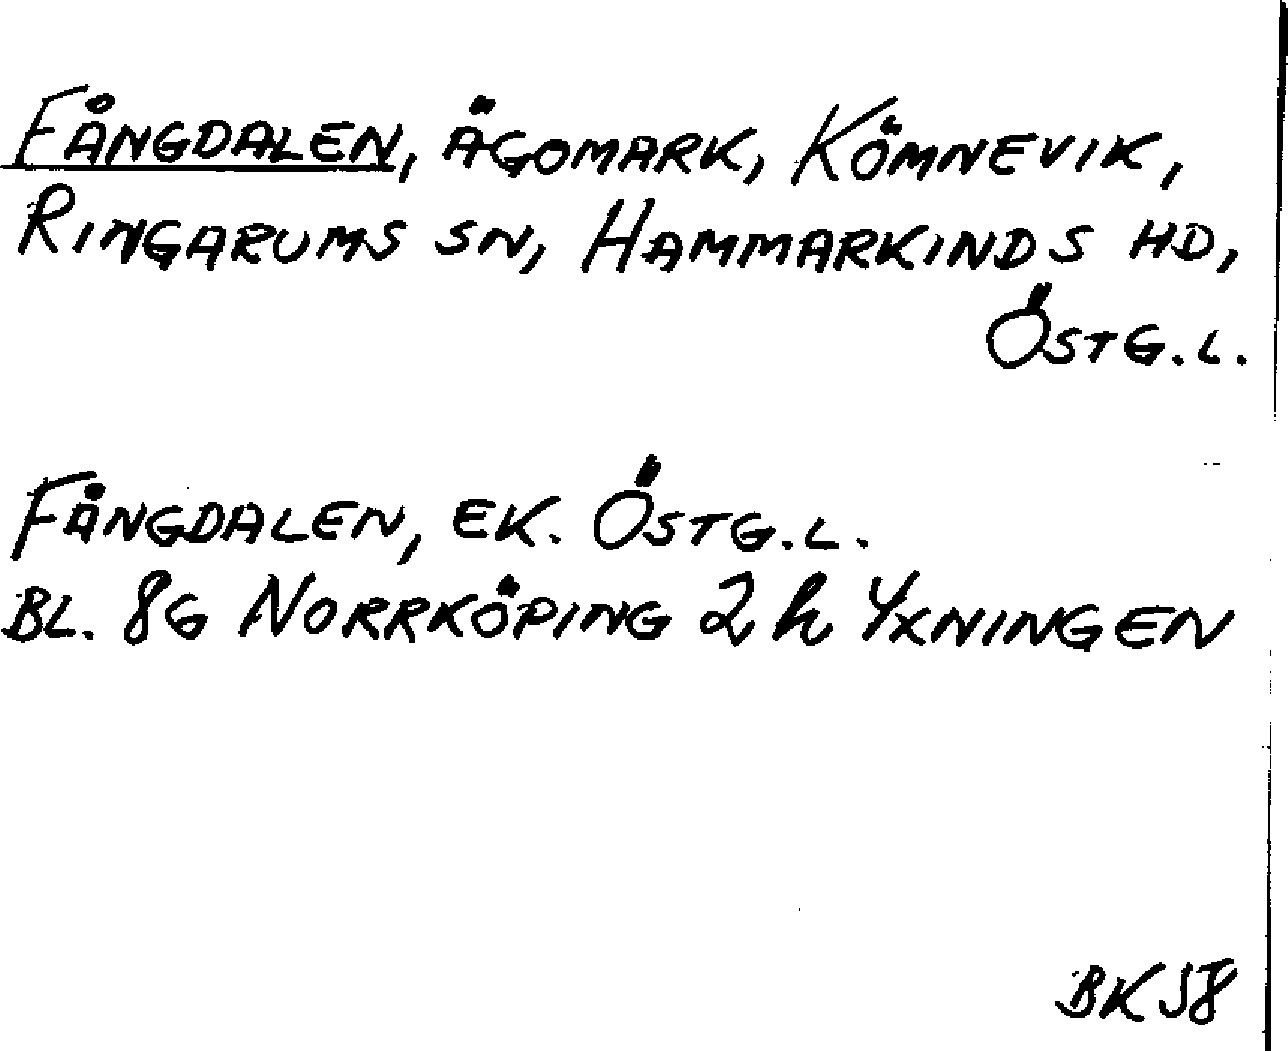 FÅNGDALEN, ÄGOMARK, KÖMNEVIK,
RINGARUMS SN, HAMMARKINDS HD,
ÖSTG.L.
FÅNGDALEN, EK. ÖSTG.L.
BL. 8G NORRKÖPING 2h YXNINGEN
BK 58